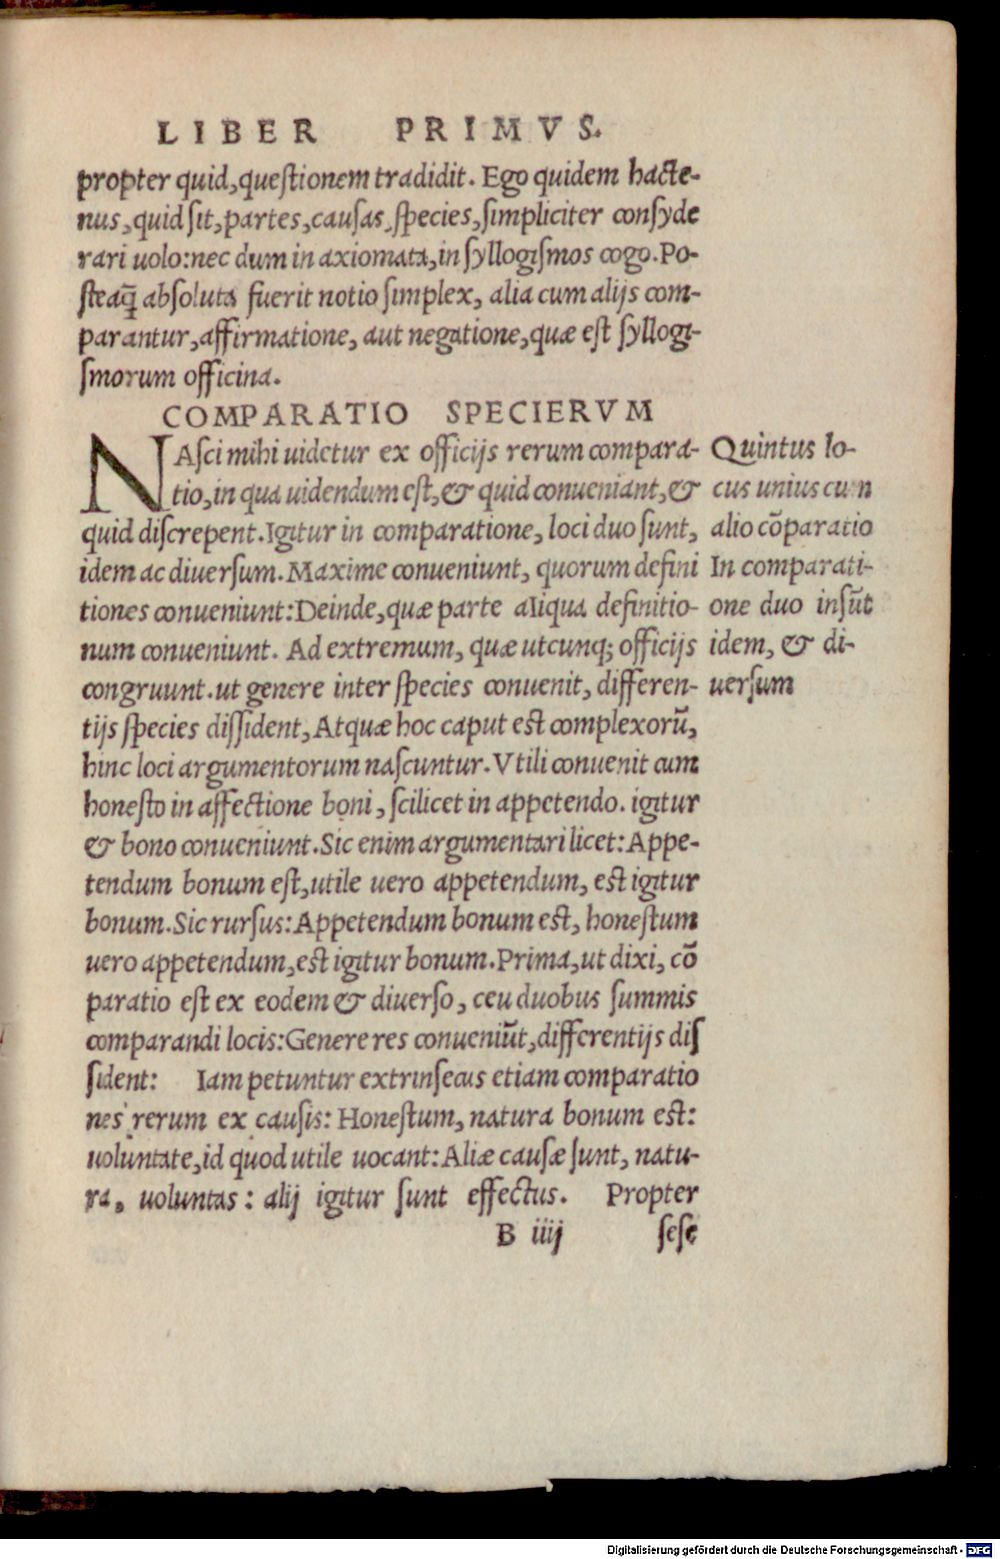 LIBER PRIMVS.
propter quid, quęstionem tradidit. Ego quidem hacte-
nus, quid sit, partes, causas, species, simpliciter consyde
rari uolo: nec dum in axiomata, in syllogismos cogo. Po-
steaq̃ absoluta fuerit notio simplex, alia cum alijs com-
parantur, affirmatione, aut negatione, quæ est syllogi-
smorum officina.
COMPARATIO SPECIERVM
NAsci mihi uidetur ex officijs rerum compara-
tio, in qua uidendum est, & quid conueniant, &
quid discrepent. Igitur in comparatione, loci duo sunt,
idem ac diuersum. Maxime conueniunt, quorum defini
tiones conueniunt: Deinde, quæ parte aliqua definitio-
num conueniunt. Ad extremum, quæ utcunq; officijs
congruunt. ut genere inter species conuenit, differen-
tijs species dissident, Atquæ hoc caput est complexorū,
hinc loci argumentorum nascuntur. Vtili conuenit cum
honesto in affectione boni, scilicet in appetendo. igitur
& bono conueniunt. Sic enim argumentari licet: Appe-
tendum bonum est, utile uero appetendum, est igitur
bonum. Sic rursus: Appetendum bonum est, honestum
uero appetendum, est igitur bonum. Prima, ut dixi, cō
paratio est ex eodem & diuerso, ceu duobus summis
comparandi locis: Genere res conueniūt, differentijs dis
sident: Iam petuntur extrinsecus etiam comparatio
nes rerum ex causis: Honestum, natura bonum est:
uoluntate, id quod utile uocant: Aliæ causæ sunt, natu-
ra, uoluntas: alij igitur sunt effectus. Propter
B iiij sese
Quintus lo-
cus unius cum
alio cōparatio
In comparati-
one duo insūt
idem, & di-
uersum
Digitalisierung gefördert durch die Deutsche Forschungsgemeinschaft - DFG